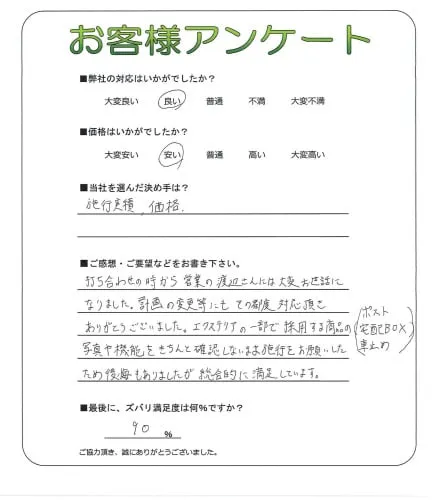 お客様アンケート
■弊社の対応はいかがでしたか?
大変良い 良い 普通 不満 大変不満
■価格はいかがでしたか?
大変安い 安い 普通 高い 大変高い
■当社を選んだ決め手は?
施行実積、価格.
■ご感想・ご要望などをお書き下さい。
打ち合わせの時から営業の渡辺さんには大変お世話に
なりました。計画の変更等にもその都度対応頂き
ありがとうございました。エクステリアの一部で採用する商品の
(ポスト
宅配BOX
車止め)
写真や機能をきちんと確認しないまま施行をお願いした
ため後悔もありましたが総合的に満足しています。
■最後に、ズバリ満足度は何%ですか?
90 %
ご協力頂き、誠にありがとうございました。